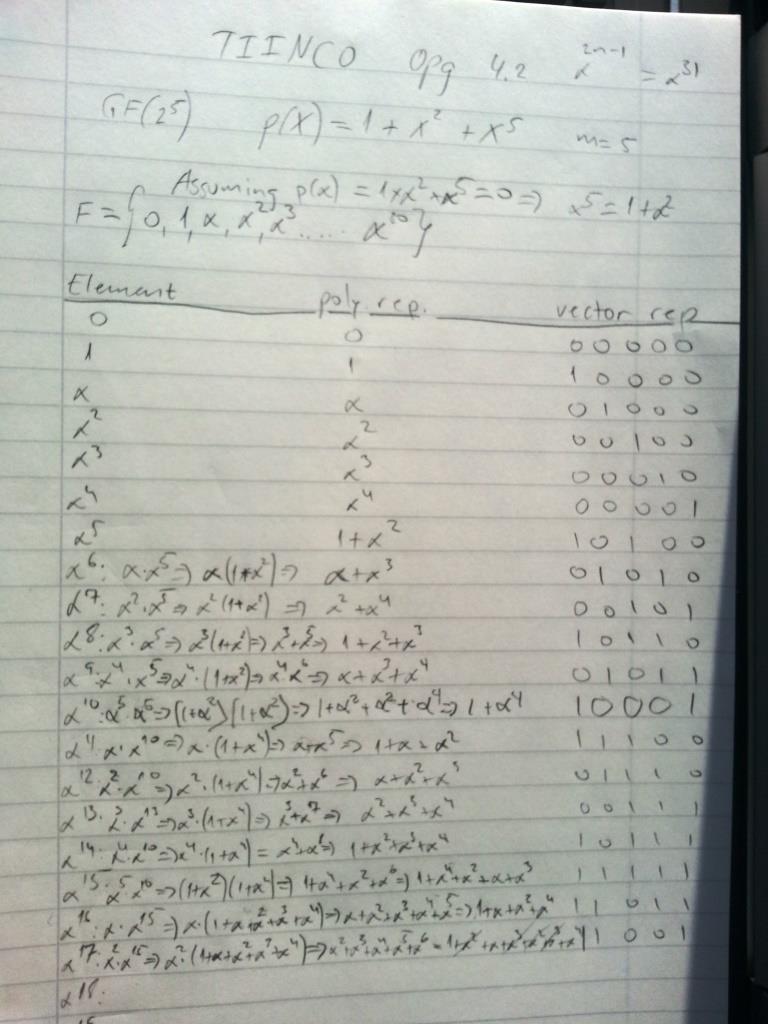 TIINCO opg 4.2 α²ⁿ⁻¹ = α³¹
GF(2⁵) p(X) = 1 + X² + X⁵ m = 5
Assuming p(x) = 1+x²+x⁵=0 => α⁵ = 1+α²
F = {0, 1, α, α², α³ ..... α³⁰}
Element poly. rep. vector rep
0 0 0 0 0 0 0
1 1 1 0 0 0 0
α α 0 1 0 0 0
α² α² 0 0 1 0 0
α³ α³ 0 0 0 1 0
α⁴ α⁴ 0 0 0 0 1
α⁵ 1+α² 1 0 1 0 0
α⁶: α·α⁵ => α(1+α²) => α+α³ 0 1 0 1 0
α⁷: α²·α⁵ => α²(1+α²) => α²+α⁴ 0 0 1 0 1
α⁸: α³·α⁵ => α³(1+α²) => α³+α⁵ => 1+α²+α³ 1 0 1 1 0
α⁹: α⁴·α⁵ => α⁴·(1+α²) => α⁴α⁶ => α+α³+α⁴ 0 1 0 1 1
α¹⁰: α⁵·α⁵ => (1+α²)(1+α²) => 1+α²+α²+α⁴ => 1+α⁴ 1 0 0 0 1
α¹¹: α·α¹⁰ => α·(1+α⁴) => α+α⁵ => 1+α+α² 1 1 1 0 0
α¹²: α²·α¹⁰ => α²·(1+α⁴) => α²+α⁶ => α+α²+α³ 0 1 1 1 0
α¹³: α³·α¹³ => α³·(1+α⁴) => α³+α⁷ => α²+α³+α⁴ 0 0 1 1 1
α¹⁴: α⁴·α¹⁰ => α⁴·(1+α⁴) = α⁴+α⁸ => 1+α²+α³+α⁴ 1 0 1 1 1
α¹⁵: α⁵·α¹⁰ => (1+α²)(1+α⁴) => 1+α⁴+α²+α⁶ => 1+α⁴+α²+α+α³ 1 1 1 1 1
α¹⁶: α·α¹⁵ => α·(1+α+α²+α³+α⁴) => α+α²+α³+α⁴+α⁵ => 1+α+α³+α⁴ 1 1 0 1 1
α¹⁷: α²·α¹⁵ => α²·(1+α+α²+α³+α⁴) => α²+α³+α⁴+α⁵+α⁶ = 1 1 0 0 1
α¹⁸: